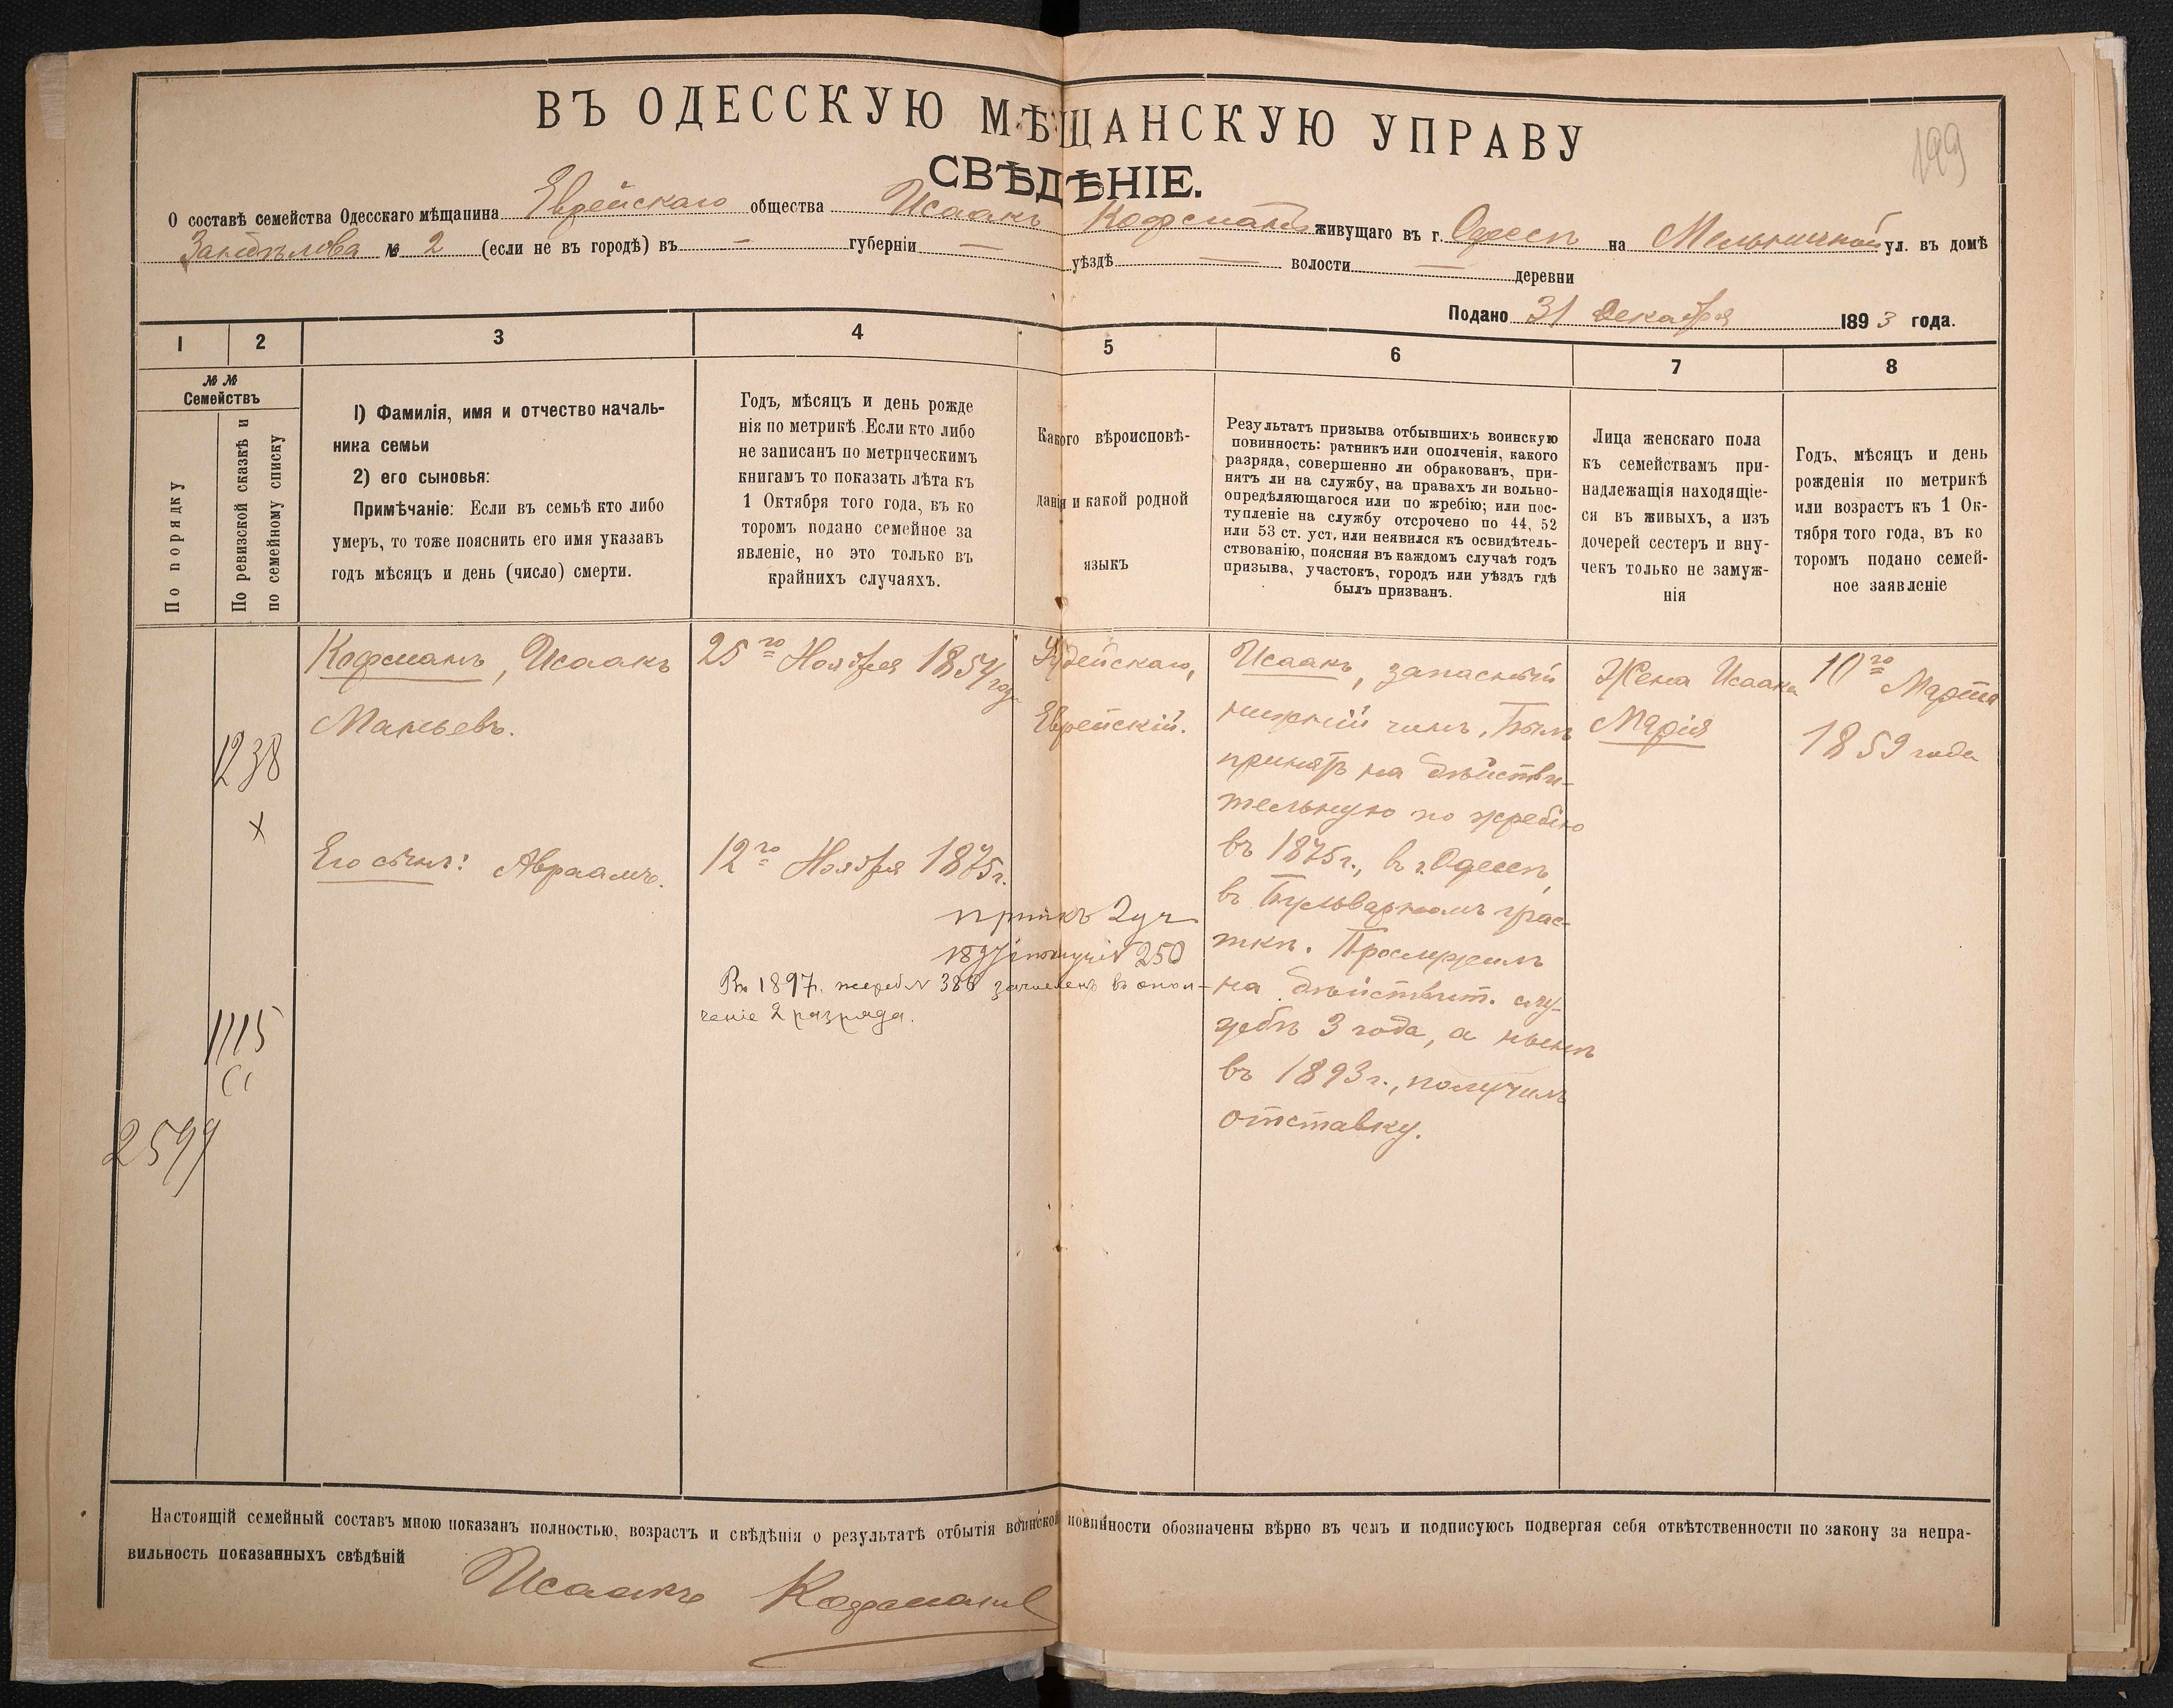 199
ВЪ ОДЕССКУЮ МѢЩАНСКУЮ УПРАВУ
СВѢДѢНІЕ.
О составѣ семейства Одесскаго мѣщанина Еврейскаго общества Исаакъ Кофмана живущаго въ г. Одессѣ на Мельничной ул. въ домѣ
№ 2 (если не въ городѣ) въ — губерніи — уѣздѣ — волости — деревни
Подано 31 Декабря 1893 года.
1 2 3 4 5 6 7 8
№ № Семействъ
По порядку
По ревизской сказкѣ и
по семейному списку
1) Фамилія, имя и отчество началь-
ника семьи
2) его сыновья:
Примѣчаніе: Если въ семьѣ кто либо
умеръ, то тоже пояснить его имя указавъ
годъ мѣсяцъ и день (число) смерти.
Годъ, мѣсяцъ и день рожде
нія по метрикѣ. Если кто либо
не записанъ по метрическимъ
книгамъ то показать лѣта къ
1 Октября того года, въ ко
торомъ подано семейное за
явленіе, но это только въ
крайнихъ случаяхъ.
Какого вѣроисповѣ-
данія и какой родной
языкъ
Результатъ призыва отбывшихъ воинскую
повинность: ратникъ или ополченія, какого
разряда, совершенно ли обракованъ, при-
нятъ ли на службу, на правахъ ли вольно-
опредѣляющагося или по жребію; или пос-
тупленіе на службу отсрочено по 44, 52
или 53 ст. уст. или неявился къ освидѣтель-
ствованію, поясняя въ каждомъ случаѣ годъ
призыва, участокъ, городъ или уѣздъ гдѣ
былъ призванъ.
Лица женскаго пола
къ семействамъ при-
надлежащія находящіе-
ся въ живыхъ, а изъ
дочерей сестеръ и вну-
чекъ только не замуж-
нія
Годъ, мѣсяцъ и день
рожденія по метрикѣ
или возрастъ къ 1 Ок-
тября того года, въ ко
торомъ подано семей-
ное заявленіе
1238
х
1115
2599
Кофманъ, Исаакъ
Маньевъ.
Его сынъ: Авраамъ.
25го Ноября 1854 года
12го Ноября 1875г.
2 уч
250
Въ 1897г. жереб № 388 зачисленъ въ опол-
ченіе 2 разряда.
Іудейскаго,
Еврейскій.
Исаакъ, запасный
нижній чинъ, Былъ
принятъ на дѣйстви-
тельную по жребію
въ 1875г., въ г. Одессѣ,
въ Бульварномъ учас-
ткѣ. Прослужилъ
на дѣйствит. слу-
жбѣ 3 года, а нынѣ
въ 1893г., получилъ
отставку.
Жена Исаака
Марія
10го Марта
1859 года
Настоящій семейный составъ мною показанъ полностью, возрастъ и свѣдѣнія о результатѣ отбытія воинской повинности обозначены вѣрно въ чемъ и подписуюсь подвергая себя отвѣтственности по закону за непра-
вильность показанныхъ свѣдѣній
Исаакъ Кофманъ